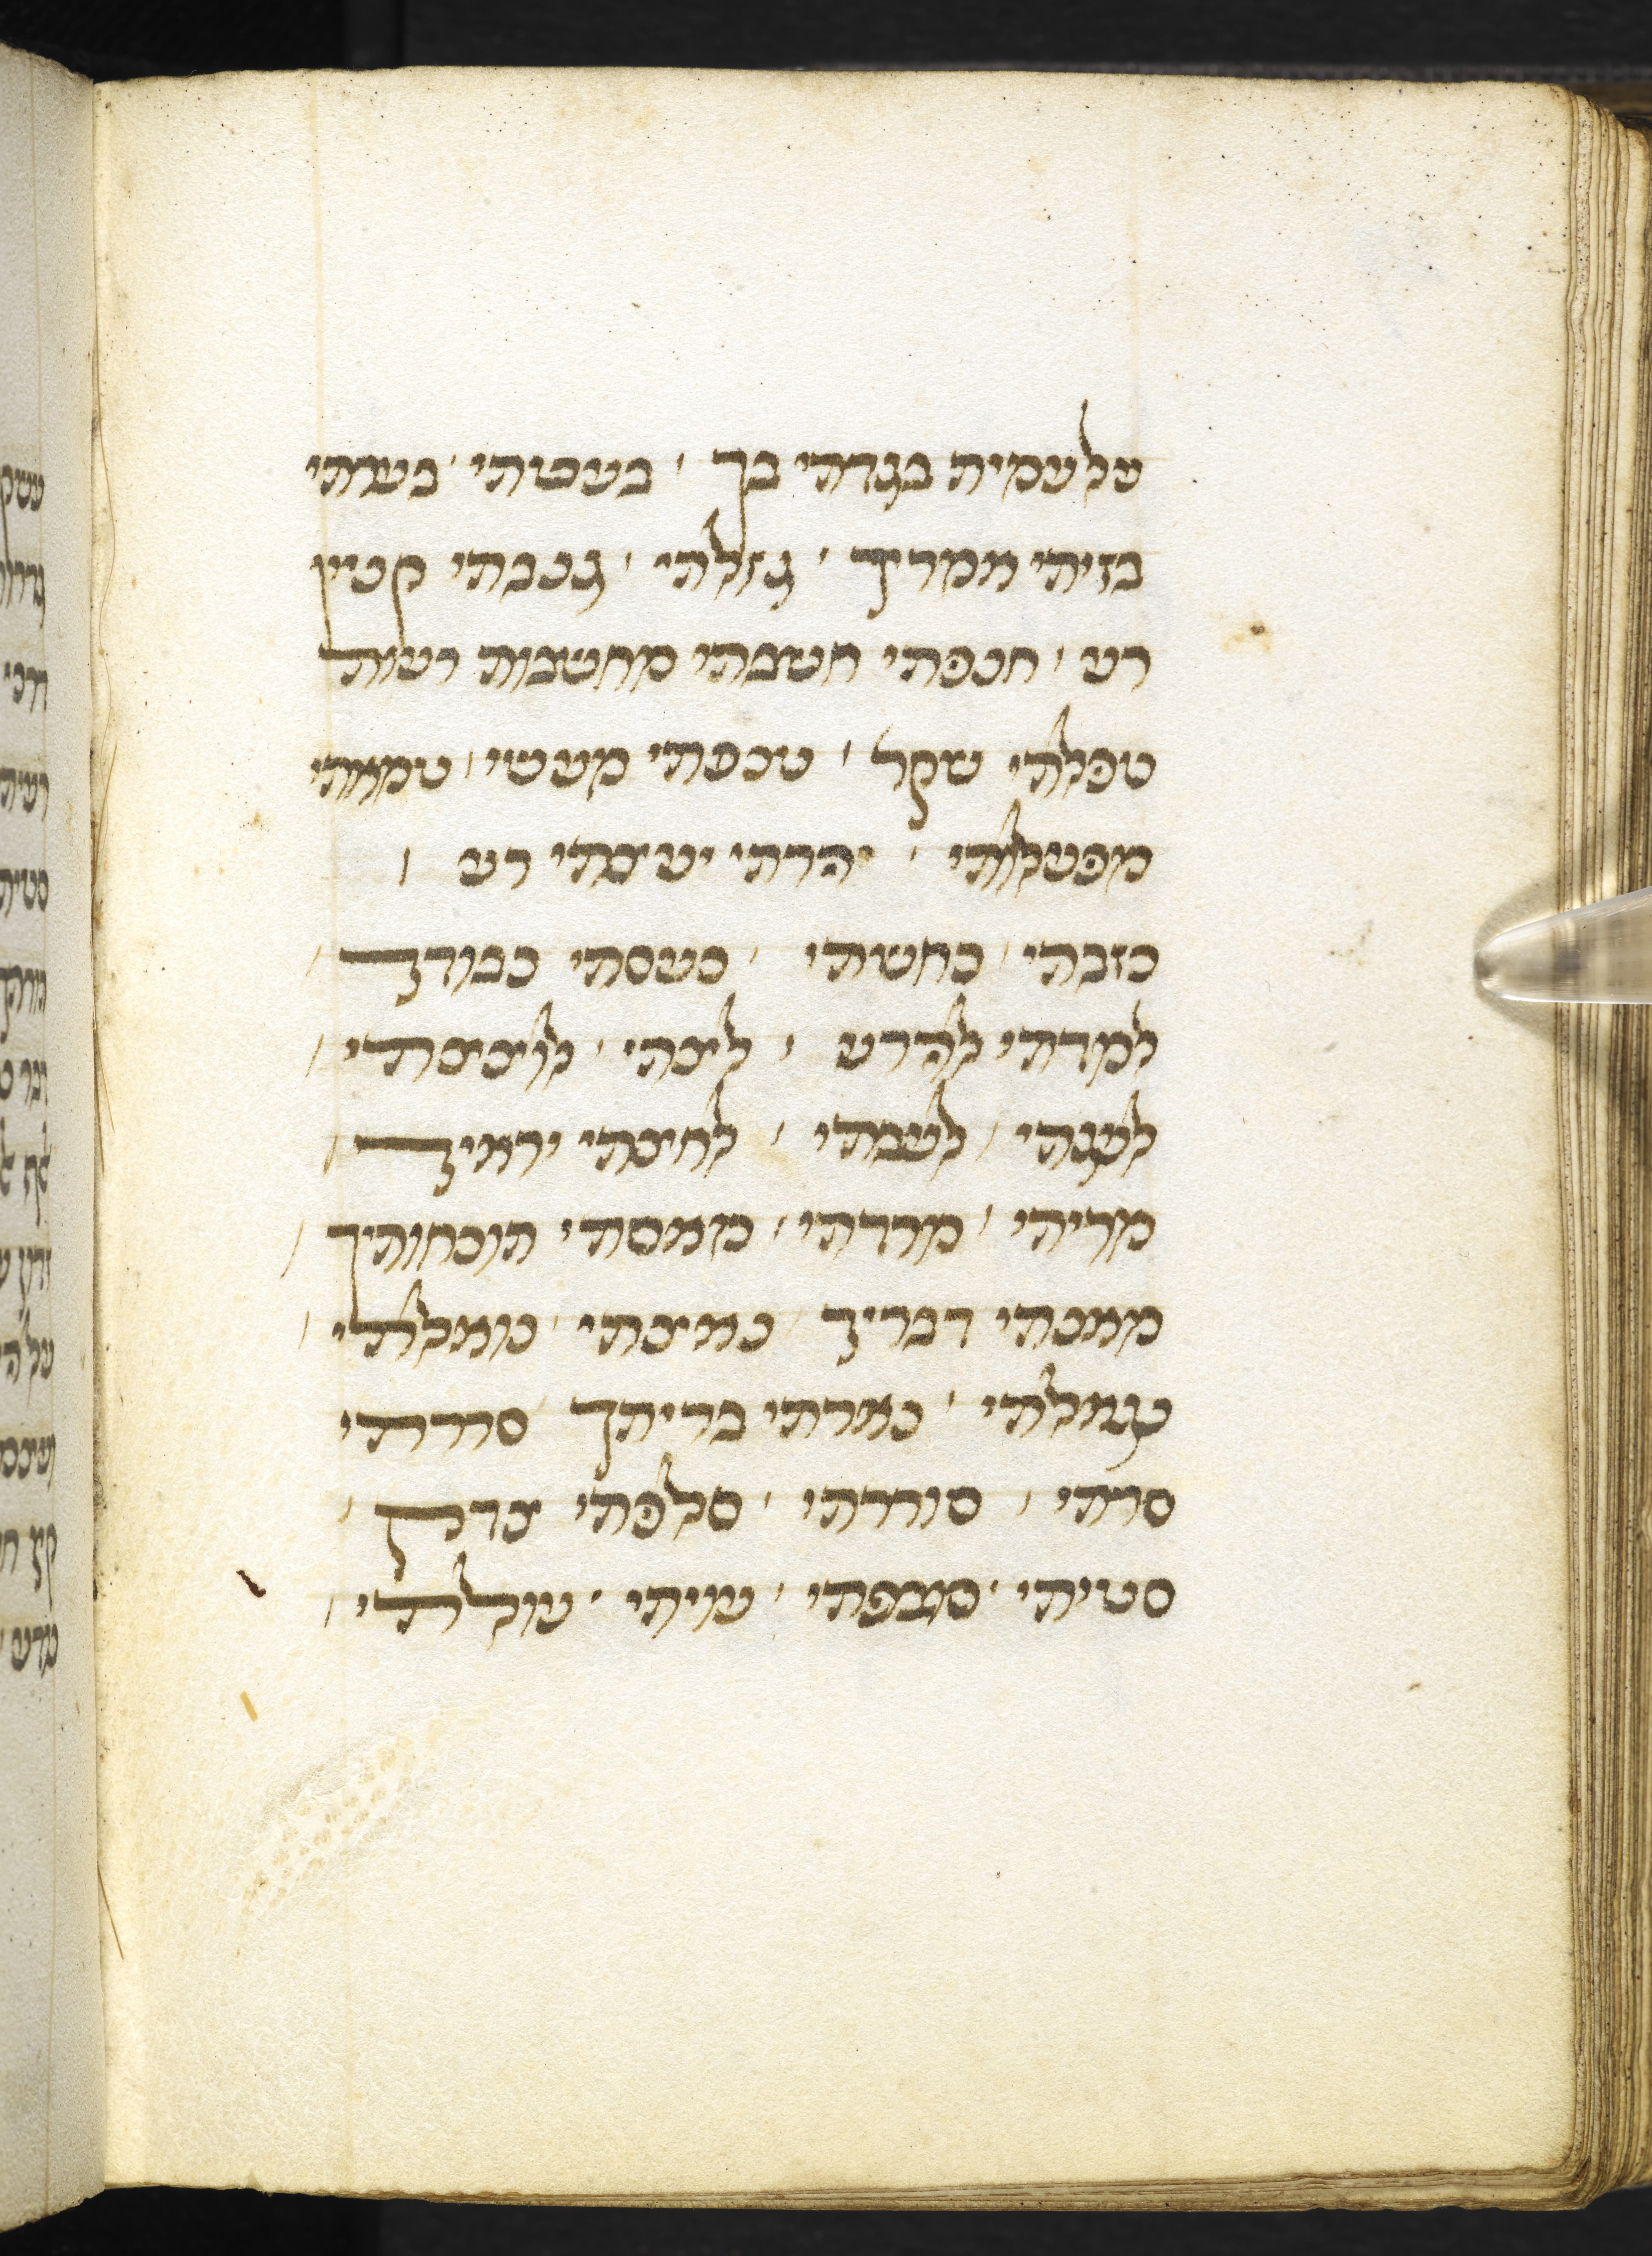 על עמית בגדתי בך ׳ בעטתי ׳ בערתי
בזיתי אמריך ׳ גזלתי ׳ גנבתי קנין
רע ׳ חנפתי חשבתי מחשבות רעות
טפלתי שקר ׳ טנפתי מעשי ׳ טמאתי
מפעלותי ׳ יהרתי יעצתי רע ׳
כזבתי ׳ כחשתי ׳ כעסתי כבודך ׳
למדתי להרע ׳ לצתי ׳ לוצצתי ׳
לעגתי ׳ לעבתי ׳ לחצתי יראיך ׳
מריתי ׳ מרדתי ׳ מאסתי תוכחותיך ׳
מאנתי דבריך ׳ נאצתי ׳ נואלתי ׳
נגאלתי ׳ נארתי בריתך ׳ סררתי
סרתי ׳ סוררתי ׳ סלפתי צדק ׳
סטיתי ׳ סעפתי ׳ עויתי ׳ עוללתי ׳